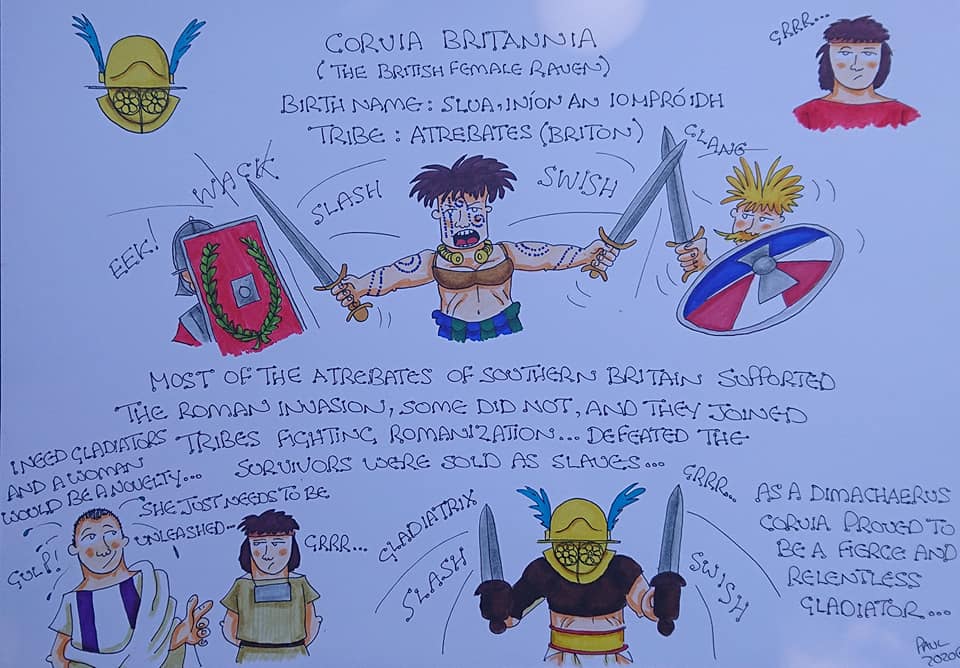 CORVIA BRITANNIA
(THE BRITISH FEMALE RAVEN)
BIRTH NAME: SLUA, INÍON AN IOMPRÓIDH
TRIBE: ATREBATES (BRITON)
GRRR...
WACK
SLASH
SWISH
CLANG
EEK!
MOST OF THE ATREBATES OF SOUTHERN BRITAIN SUPPORTED
THE ROMAN INVASION, SOME DID NOT, AND THEY JOINED
TRIBES FIGHTING ROMANIZATION... DEFEATED THE
SURVIVORS WERE SOLD AS SLAVES...
I NEED GLADIATORS
AND A WOMAN
WOULD BE A NOVELTY...
SHE JUST NEEDS TO BE
UNLEASHED...
GULP!
GRRR...
GLADIATRIX
SLASH
GRRR...
SWISH
AS A DIMACHAERUS
CORVIA PROVED TO
BE A FIERCE AND
RELENTLESS
GLADIATOR...
PAUL
2020©